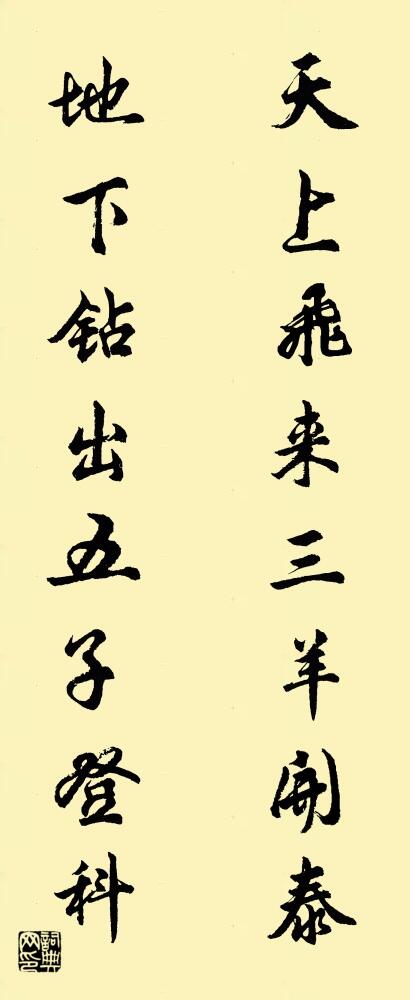 天上飛来三羊開泰
地下钻出五子登科
詞典
网印